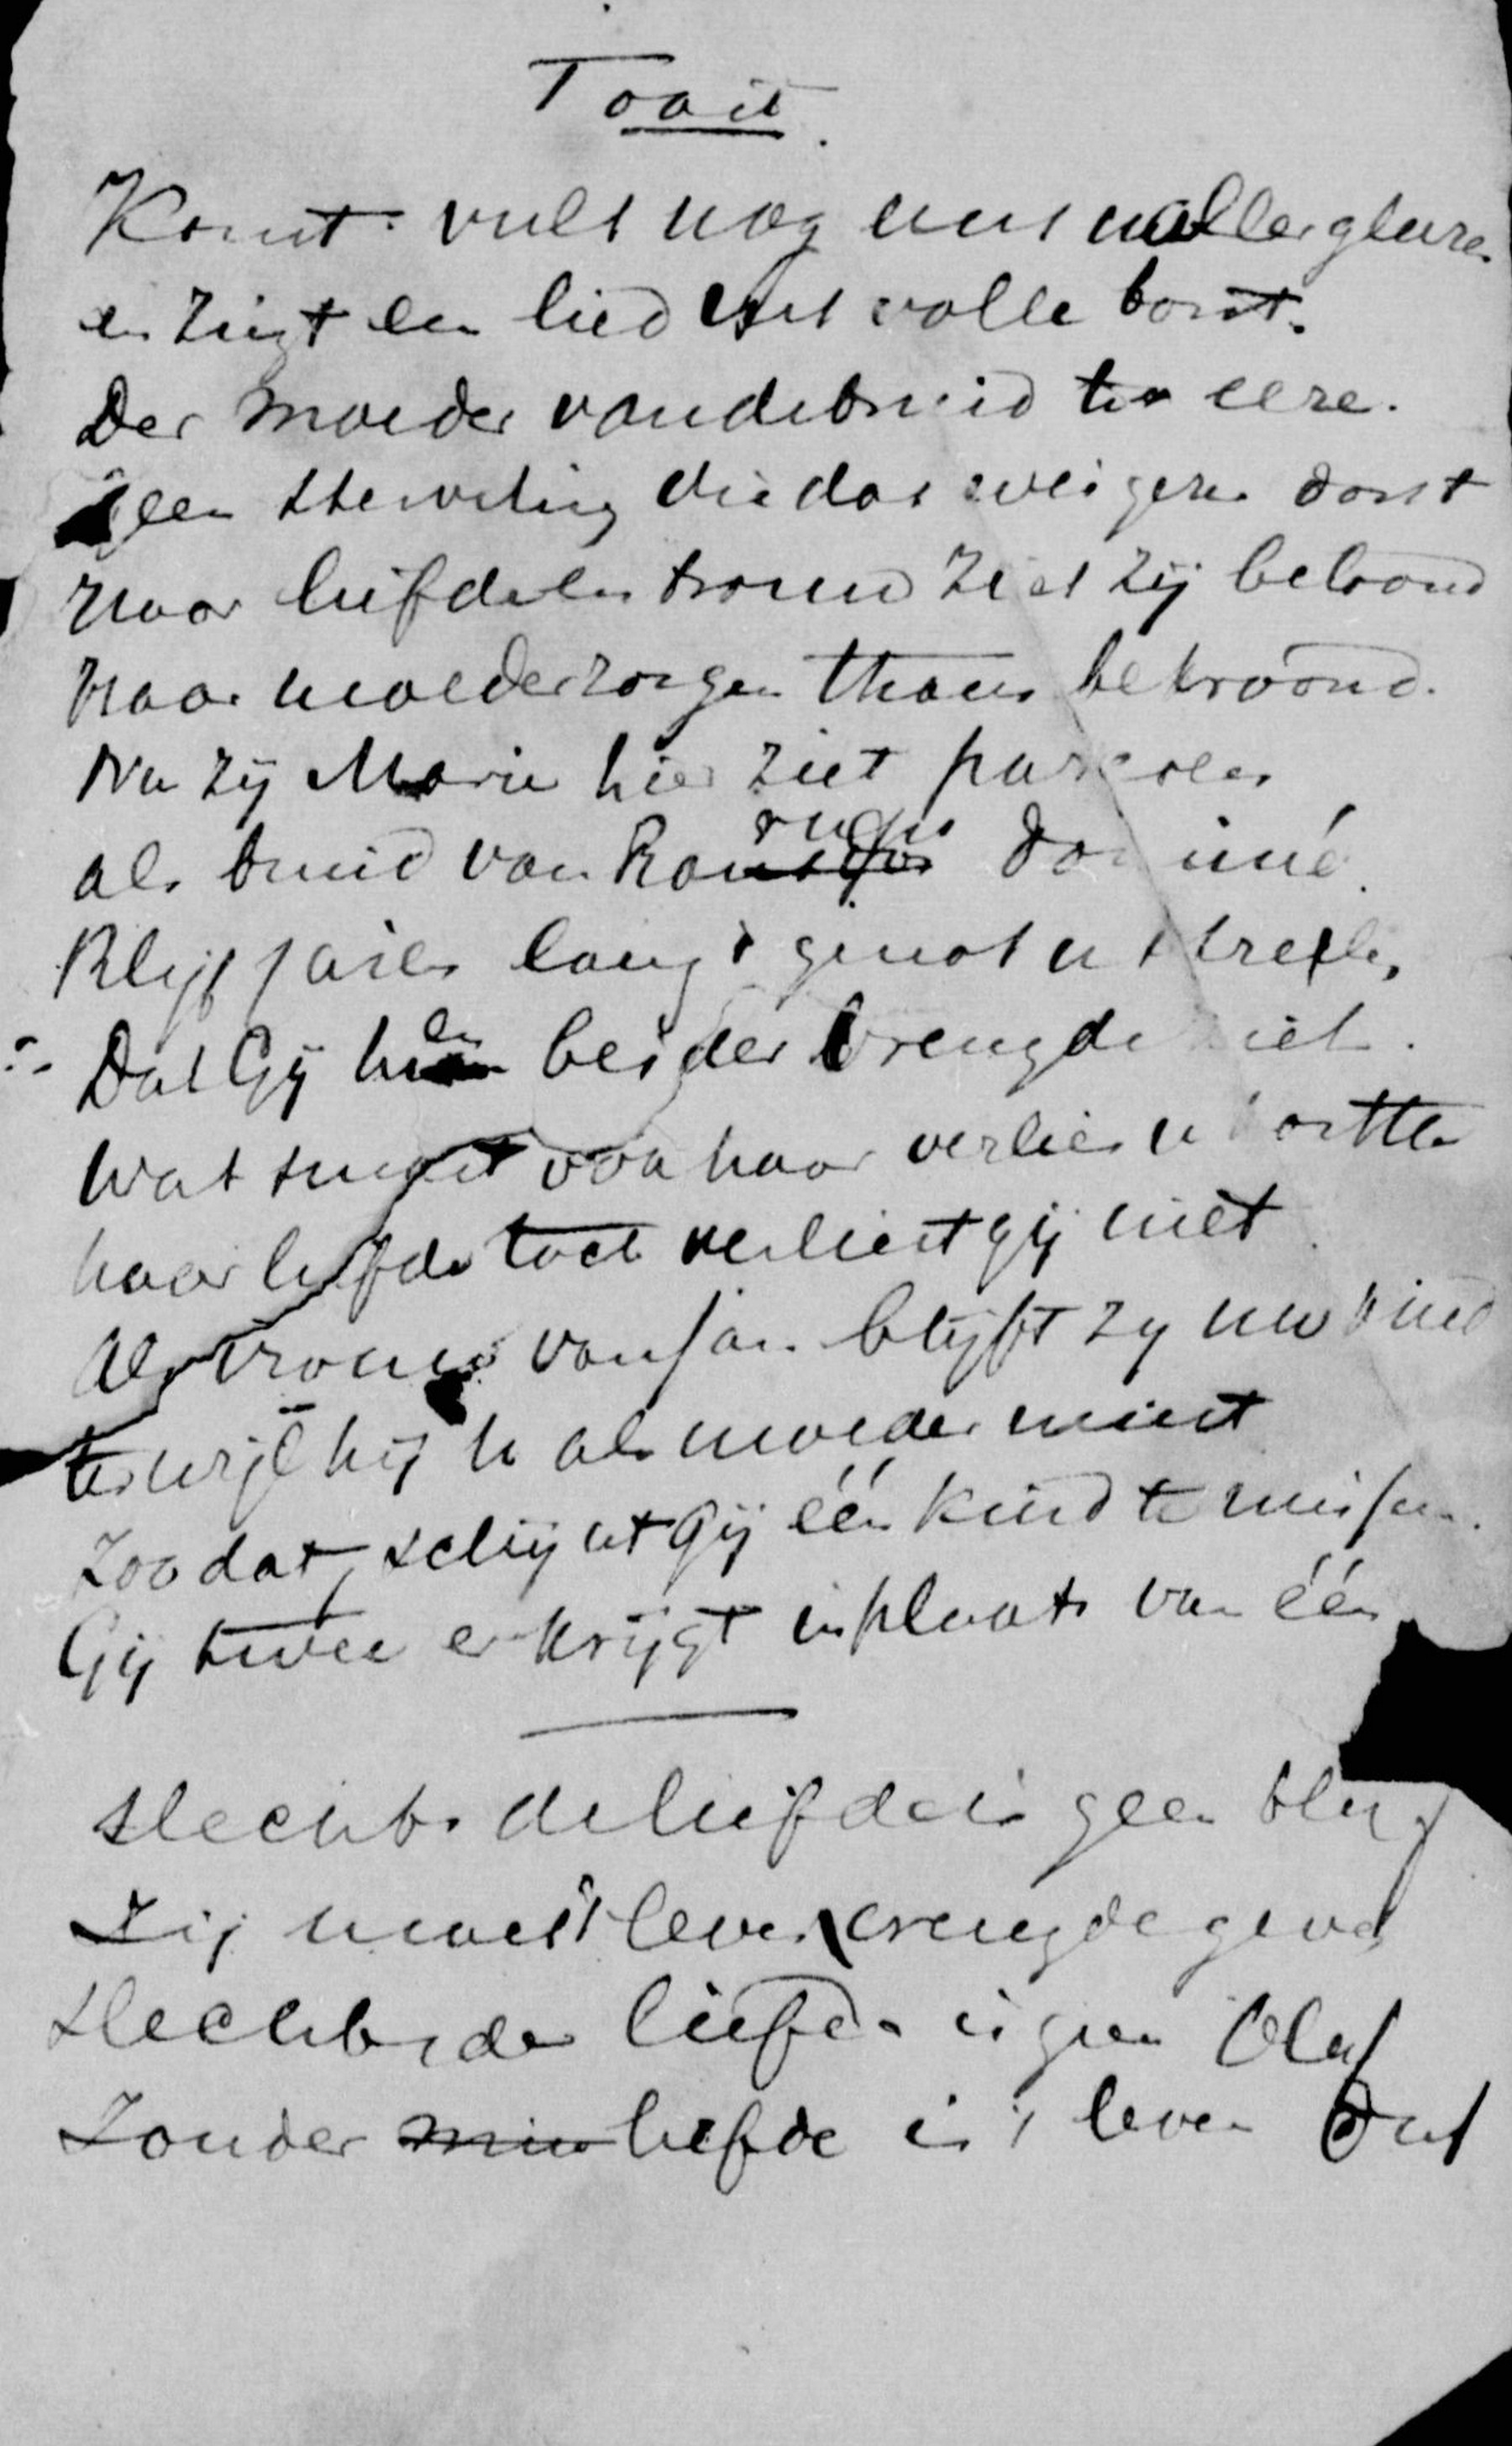 Toast.
Komt vult nog eens aller glazen
en zingt een lied uit volle borst.
Der moeder van de bruid ter eere.
geen sterveling die dat weigeren dorst
Haar liefde en trouw ziet zij beloond
Haar moederzorgen thans bekroond.
Nu zij Marie hier ziet
als bruid van dominé.
Blijf jaren lang 't genot u streelen,
Dat Gij hen beider vreugde ziet.
Wat smart van haar verlies u
haar liefde toch verliest gij niet
Als vrouw van Jan blijft zy uw kind
terwijl hij u als moeder mint
Zoodat, schijnt Gij één kind te missen.
Gij twee er krijgt in plaats van één
Slechts de liefde is geen bluf
Zij moet 't leven vreugde geven
Slechts de liefde is geen bluf
Zonder min liefde is 't leven duf